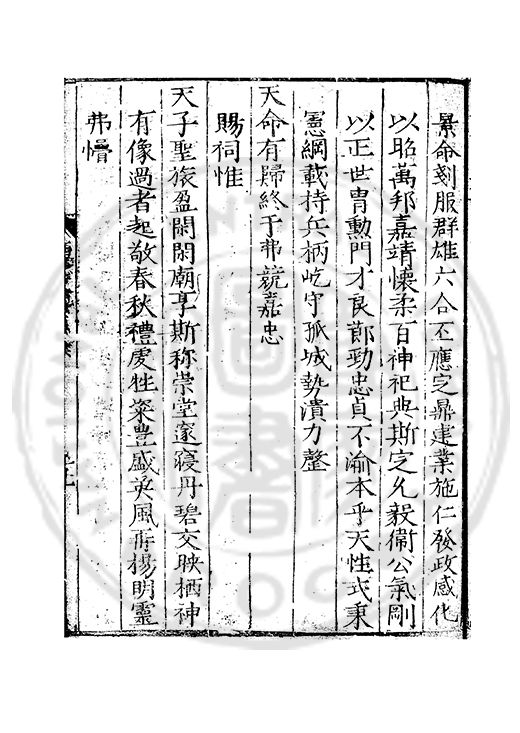 景命剗服群雄六合丕應定鼎建業施仁發政感化
以昭萬邦嘉靖懷柔百神祀典斯定允毅衛公氣剛
以正世胄勳門才良節勁忠貞不渝本乎天性式秉
憲綱載持兵柄屹守孤城勢潰力罄
天命有歸終于弗競嘉忠
賜祠惟
天子聖旅盈閎閎廟享斯称崇堂邃寢丹碧交映栖神
有像過者起敬春秋禮虔牲粢豊盛英風再揚明靈
弗懵